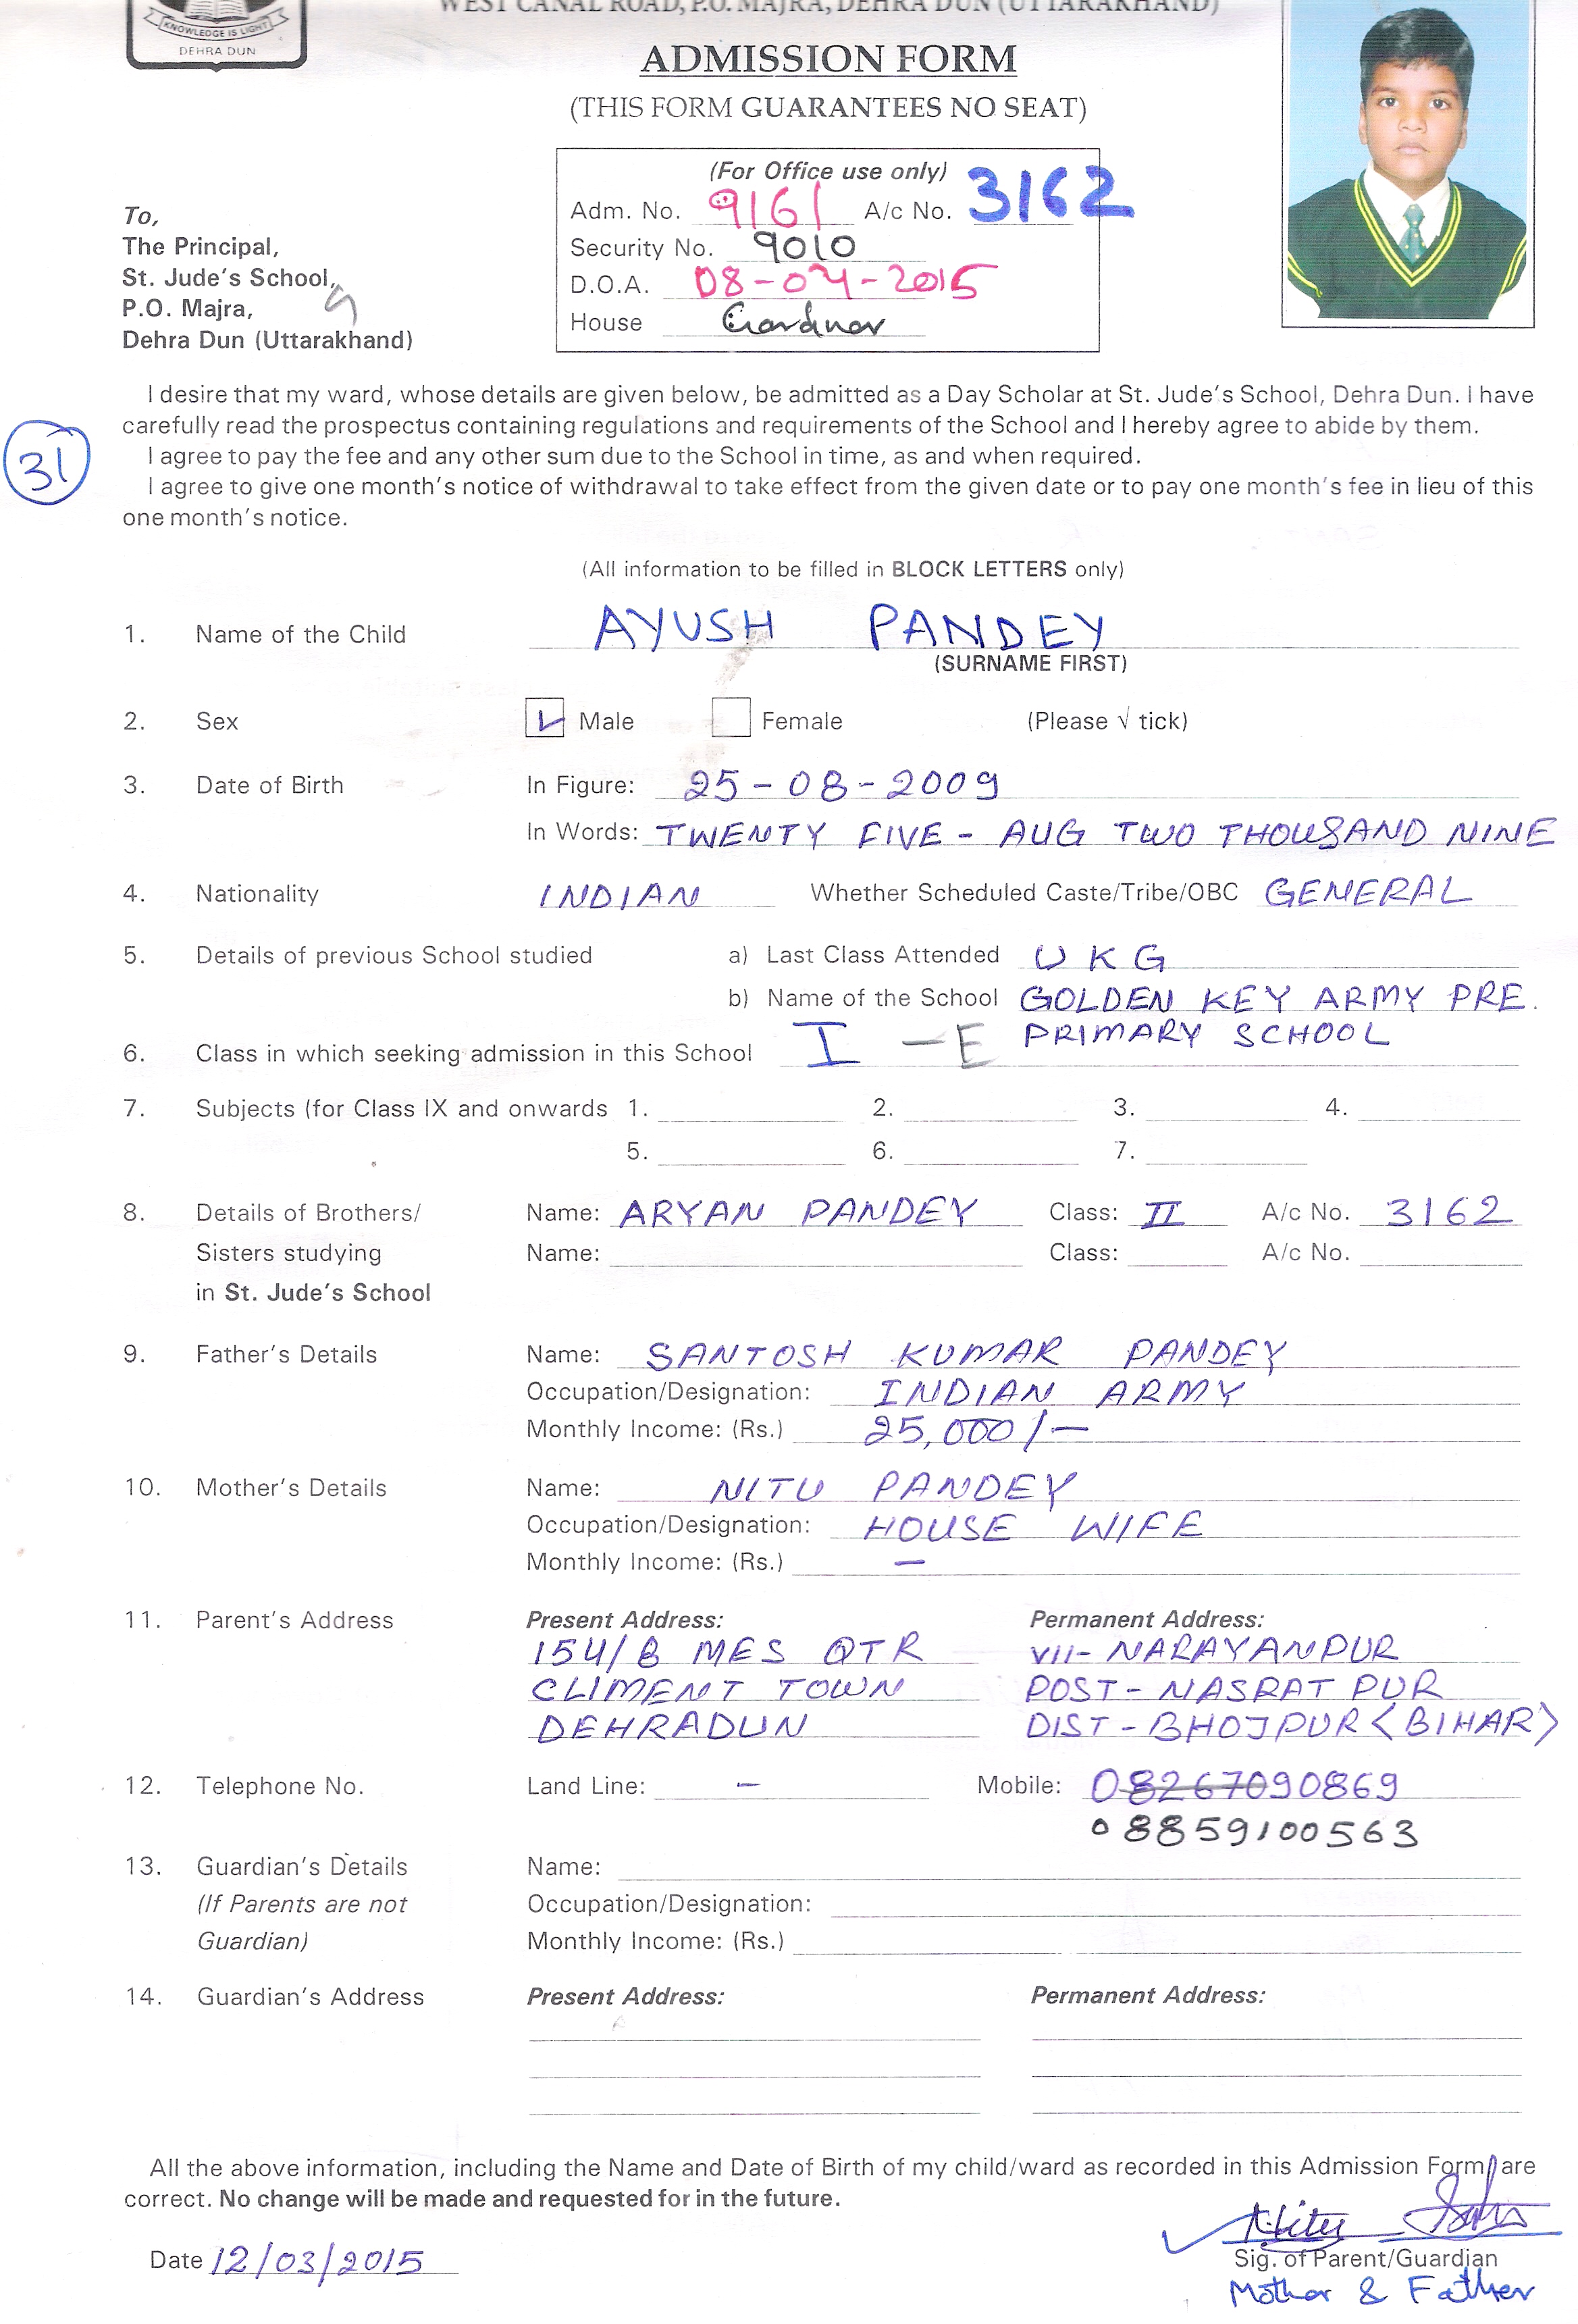 WEST CANAL ROAD, P.O. MAJRA, DEHRA DUN (UTTARAKHAND)
KNOWLEDGE IS LIGHT
DEHRA DUN
ADMISSION FORM
(THIS FORM GUARANTEES NO SEAT)
(For Office use only)
Adm. No. 9161 A/c No. 3162
Security No. 9010
D.O.A. 08-04-2015
House Gardner
To,
The Principal,
St. Jude's School,
P.O. Majra,
Dehra Dun (Uttarakhand)
I desire that my ward, whose details are given below, be admitted as a Day Scholar at St. Jude's School, Dehra Dun. I have
carefully read the prospectus containing regulations and requirements of the School and I hereby agree to abide by them.
31
I agree to pay the fee and any other sum due to the School in time, as and when required.
I agree to give one month's notice of withdrawal to take effect from the given date or to pay one month's fee in lieu of this
one month's notice.
(All information to be filled in BLOCK LETTERS only)
1. Name of the Child AYUSH PANDEY
(SURNAME FIRST)
2. Sex Male Female (Please √ tick)
3. Date of Birth In Figure: 25-08-2009
In Words: TWENTY FIVE - AUG TWO THOUSAND NINE
4. Nationality INDIAN Whether Scheduled Caste/Tribe/OBC GENERAL
5. Details of previous School studied a) Last Class Attended UKG
b) Name of the School GOLDEN KEY ARMY PRE.
PRIMARY SCHOOL
6. Class in which seeking admission in this School I - E
7. Subjects (for Class IX and onwards 1. 2. 3. 4.
5. 6. 7.
8. Details of Brothers/ Name: ARYAN PANDEY Class: II A/c No. 3162
Sisters studying Name: Class: A/c No.
in St. Jude's School
9. Father's Details Name: SANTOSH KUMAR PANDEY
Occupation/Designation: INDIAN ARMY
Monthly Income: (Rs.) 25,000/-
10. Mother's Details Name: NITU PANDEY
Occupation/Designation: HOUSE WIFE
Monthly Income: (Rs.) -
11. Parent's Address Present Address: Permanent Address:
154/B MES QTR VII- NARAYANPUR
CLIMENT TOWN POST- NASRAT PUR
DEHRADUN DIST - BHOJPUR <BIHAR>
12. Telephone No. Land Line: - Mobile: 08267090869
08859100563
13. Guardian's Details Name:
(If Parents are not Occupation/Designation:
Guardian) Monthly Income: (Rs.)
14. Guardian's Address Present Address: Permanent Address:
All the above information, including the Name and Date of Birth of my child/ward as recorded in this Admission Form are
correct. No change will be made and requested for in the future.
Nitu
Date 12/03/2015 Sig. of Parent/Guardian
Mother & Father